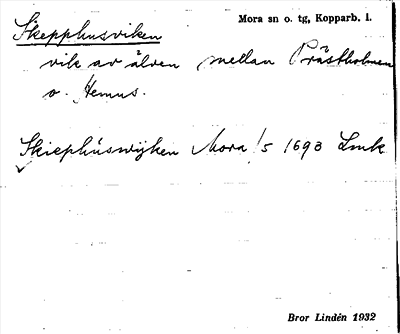 Skepphusviken
Mora sn o. tg, Kopparb. l.
vik av älven mellan Prästholmen
o. Hemus.
Skiephúswijken Mora 1/5 1693 Lmk
Bror Lindén 1932